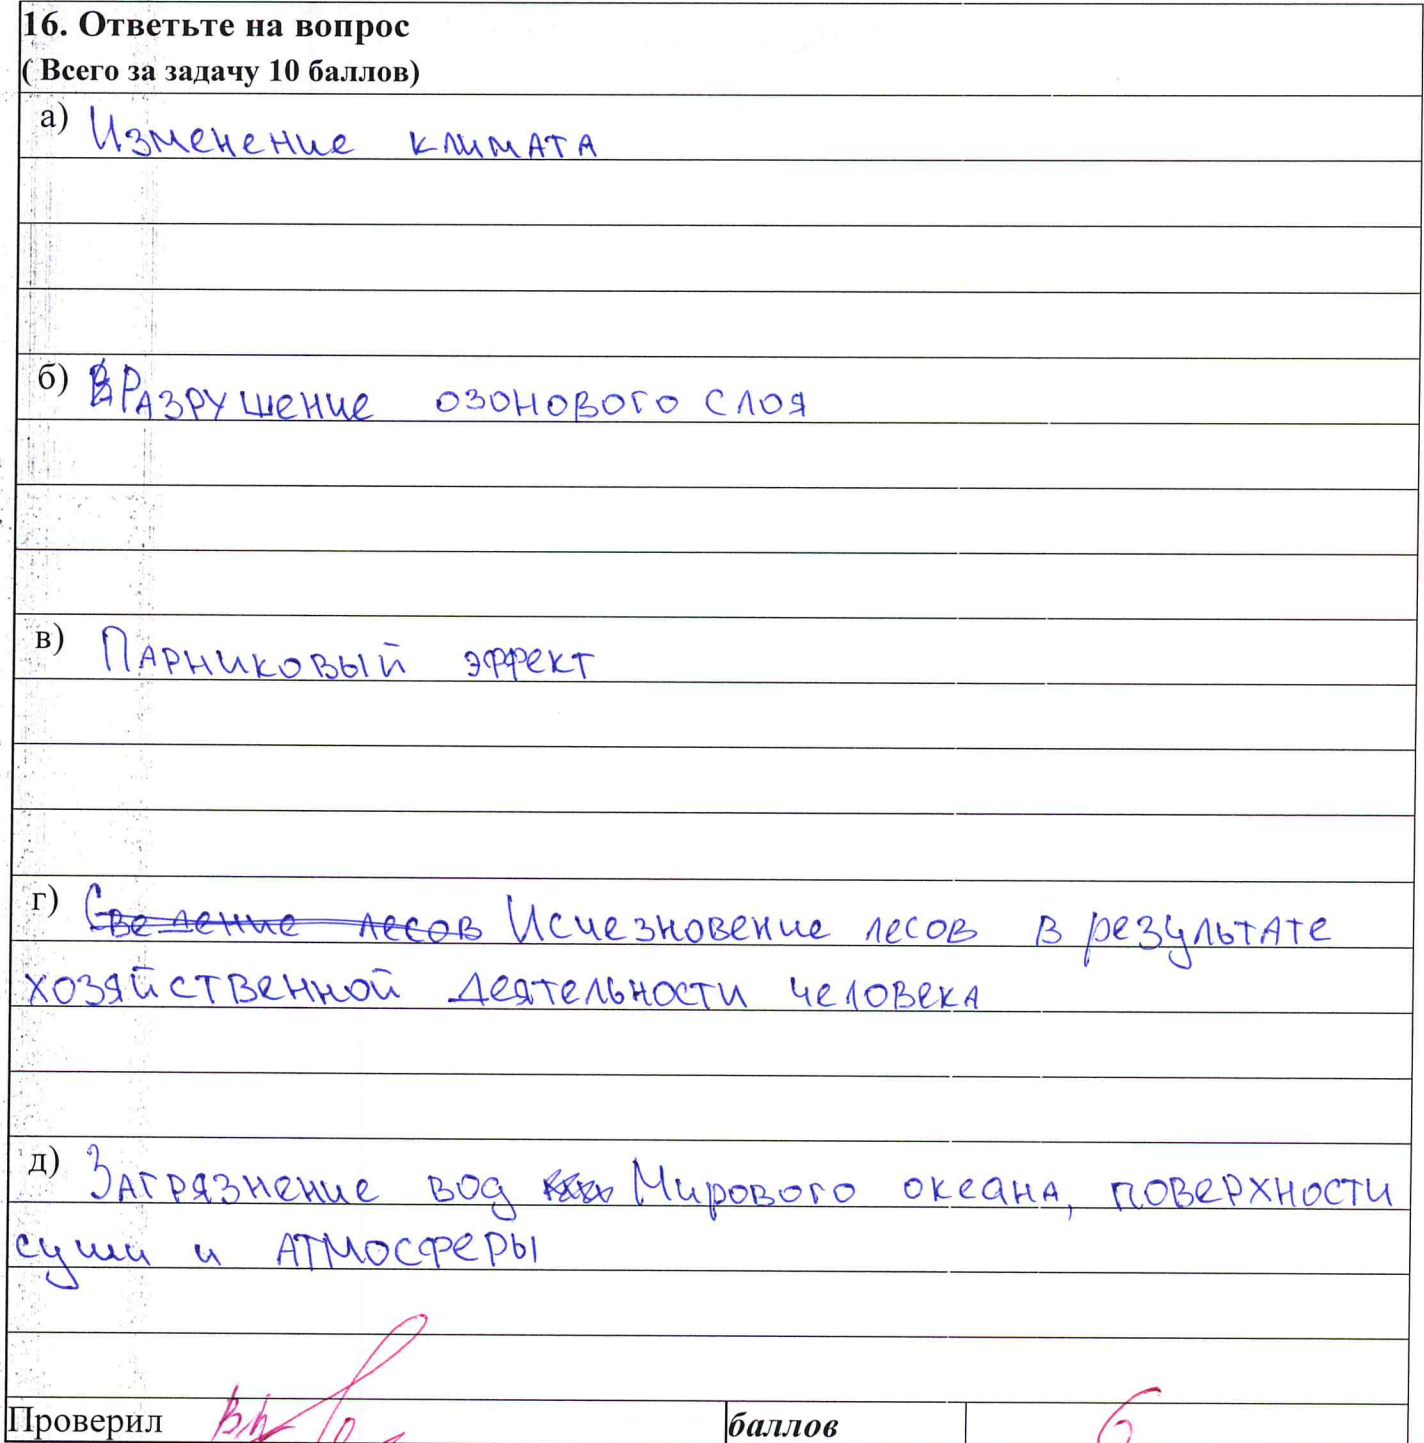 16. Ответьте на вопрос
( Всего за задачу 10 баллов)
а) Изменение климата
б) Разрушение озонового слоя
в) Парниковый эффект
г) Сведение лесов Исчезновение лесов в результате
хозяйственной деятельности человека
д) Загрязнение вод Мирового океана, поверхности
суши и атмосферы
Проверил баллов 6